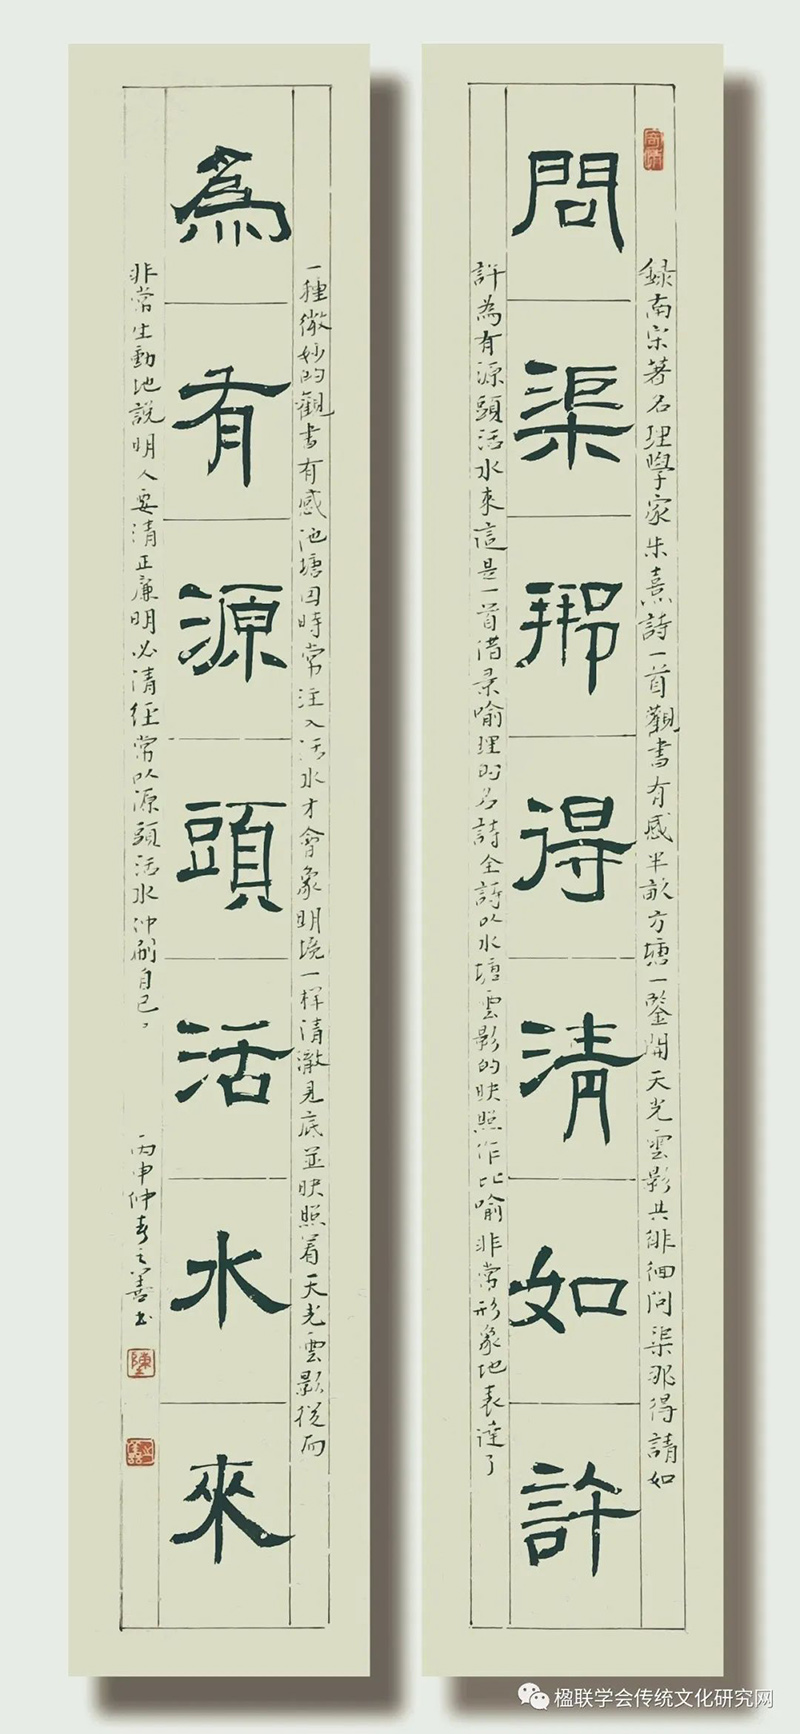 問渠那得清如許
錄南宋著名理學家朱熹詩一首觀書有感半畝方塘一鑒開天光雲影共徘徊問渠那得請如
許為有源頭活水來這是一首借景喻理的名詩全詩以水塘雲影的映照作比喻非常形象地表達了
為有源頭活水來
一種微妙的觀書有感池塘因時常注入活水才會象明境一样清澈見底並映照着天光雲影從而
非常生動地說明人要清正廉明必清經常以源頭活水冲刷自己
丙申仲春之善书
楹联学会传统文化研究网